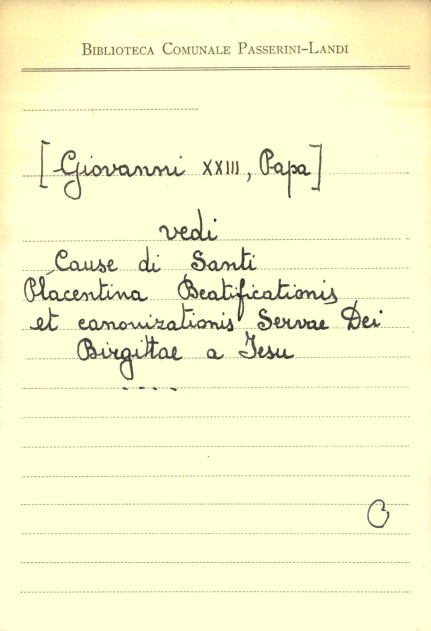 BIBLIOTECA COMUNALE PASSERINI-LANDI
[Giovanni XXIII, Papa]
vedi
Cause di Santi
Placentina Beatificationis
et canonizationis Servae Dei
Birgittae a Jesu
....